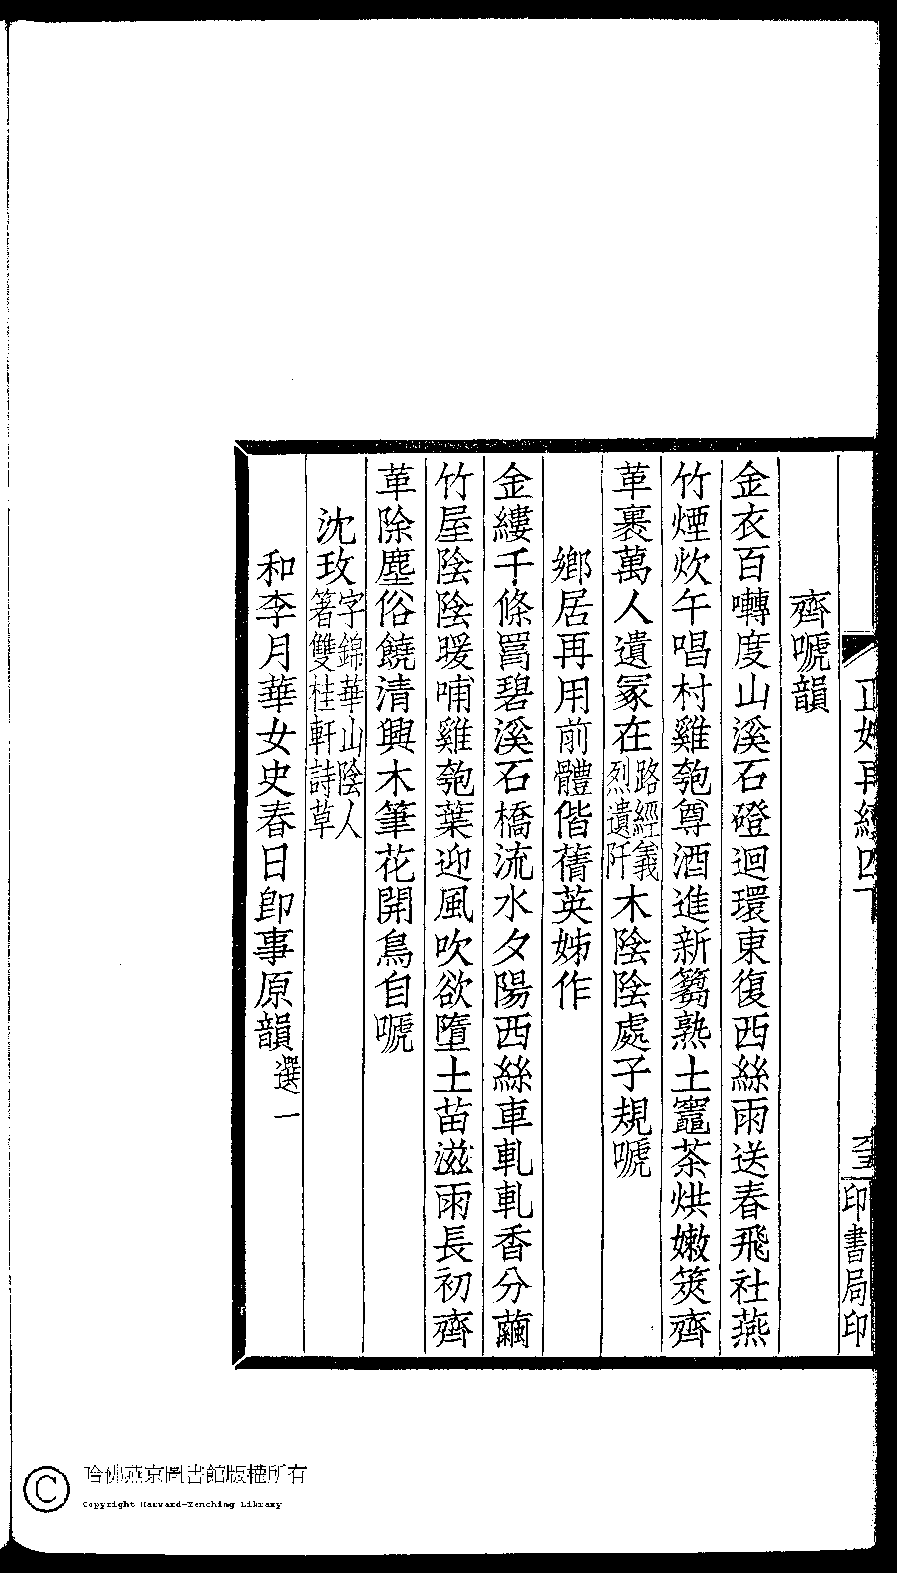 齊嗁韻
金衣百囀度山溪石磴迴環東復西絲雨送春飛社燕
竹煙炊午唱村雞匏尊酒進新篘熟土竈茶烘嫩筴齊
革裹萬人遺冢在路經義烈遺阡木陰陰處子規嗁
鄉居再用前體偕蒨英姊作
金縷千條罥碧溪石橋流水夕陽西絲車軋軋香分繭
竹屋陰陰暖哺雞匏葉迎風吹欲墮土苗滋雨長初齊
革除塵俗饒清興木筆花開鳥自嗁
沈玫字錦華山陰人著雙桂軒詩草
和李月華女史春日卽事原韻選一
印書局印
哈佛燕京圖書館版權所有
Copyright Harvard-Yenching Library